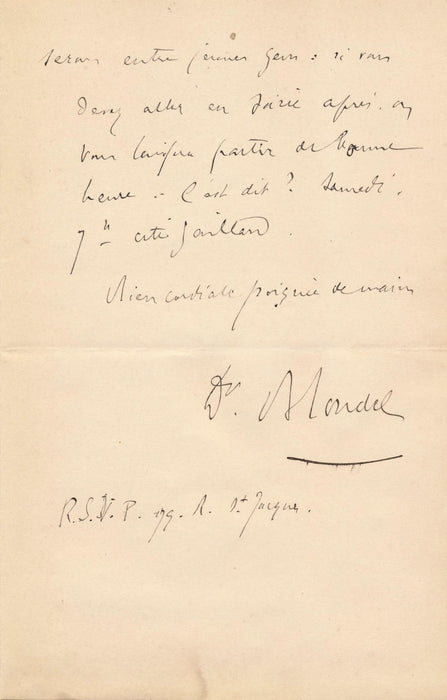 serons entre jeunes gens : si vous
devez aller en soirée après, on
vous laissera partir de bonne
heure. - C'est dit ? Samedi,
7h cité Gaillard.
Bien cordiale poignée de mains
Dr. Blondel
R.S.V.P. 179. R. St Jacques.